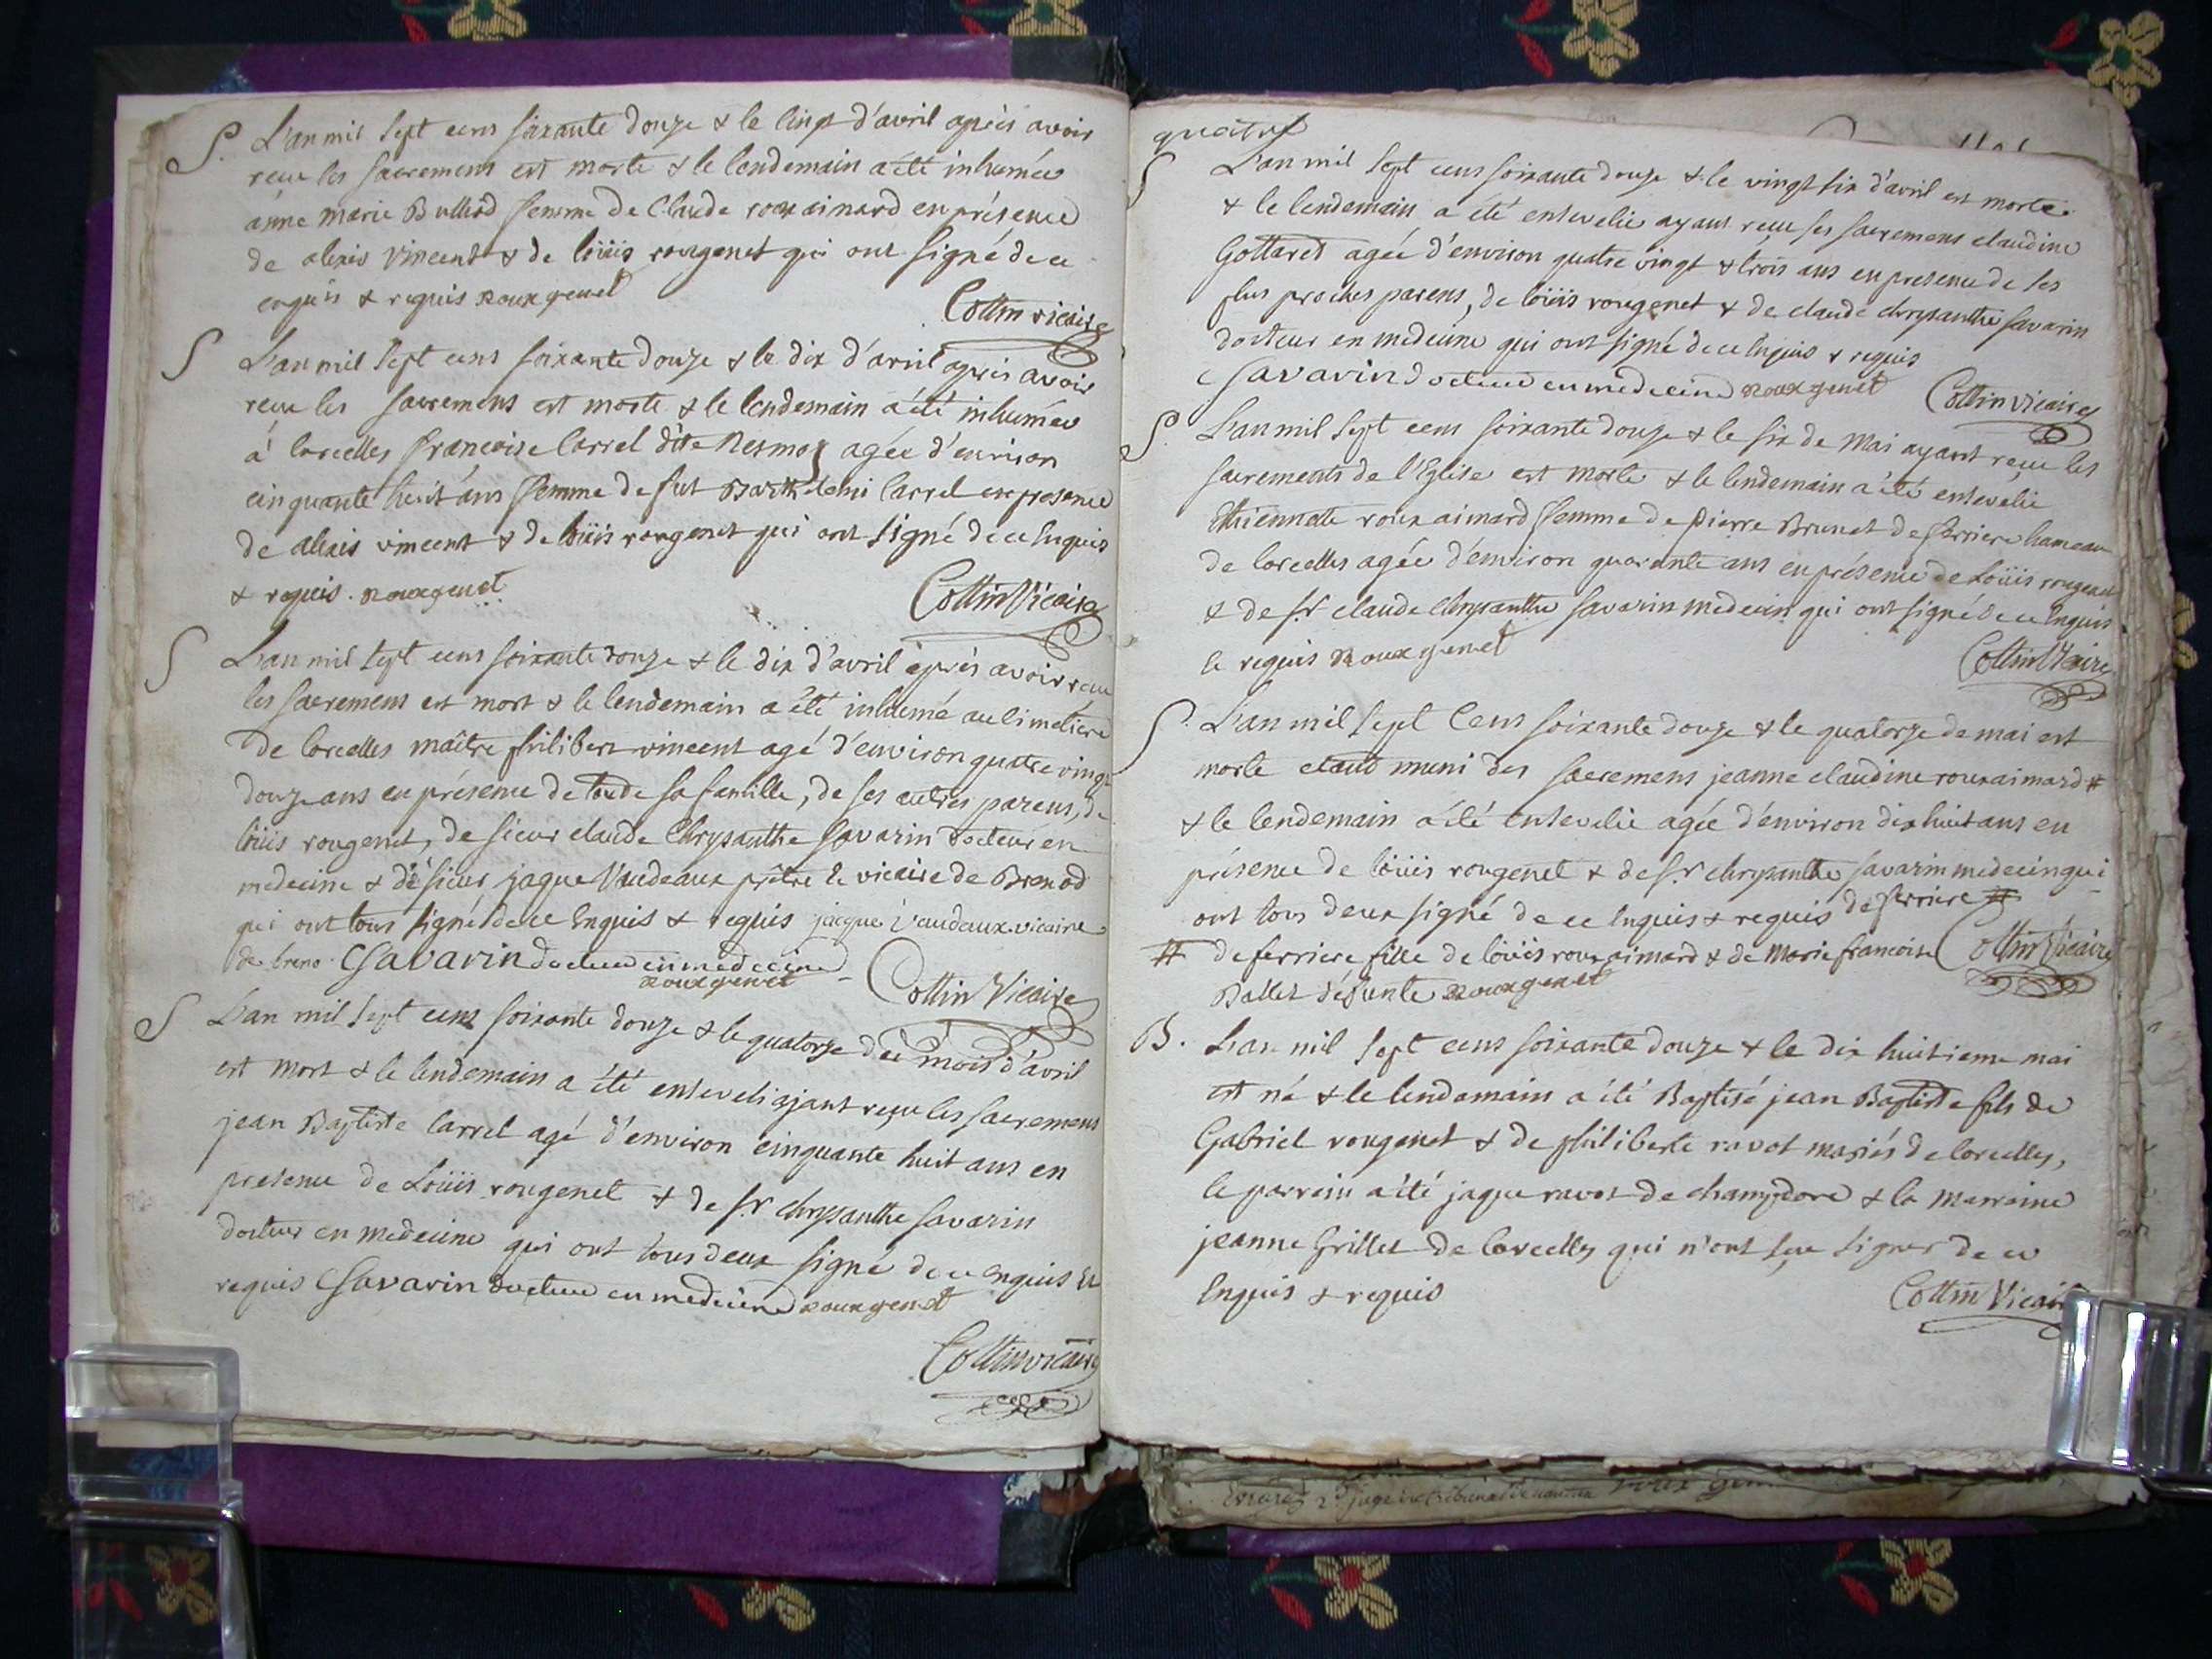 S. L'an mil sept cens soixante douze & le cinq d'avril après avoir
recu les sacremens est morte & le lendemain a été inhumée
anne marie Bulliod femme de Claude roux aimard en présence
de alexis vincent & de loüis rougenet qui ont signé de ce
enquis & requis Rouxgenet
Collin vicaire
S L'an mil sept cens soixante douze & le dix d'avril après avoir
recu les sacremens est morte & le lendemain a été inhumée
à Corcelles francoise Carrel dite Nesmoz agée d'environ
cinquante huit ans femme de fut Barthelemi Carrel en presence
de alexis vincent & de loüis rougenet qui ont signé de ce enquis
& requis. Rouxgenet
Collin Vicaire
S L'an mil sept cens soixante douze & le dix d'avril après avoir recu
les sacremens est mort & le lendemain a été inhumé au Cimetiere
de Corcelles maître philibert vincent agé d'environ quatre vingt
douze ans en présence de toute sa famille, de ses autres parens, de
loüis rougenet, de sieur claude Chrysanthe Savarin docteur en
medecine & de sieur jaque Vaudeaux prêtre & vicaire de Brenod
qui ont tous signé de ce Enquis & requis jacque Vaudaux vicaire
de breno. CSavarin docteur en medecine
Rouxgenet
Collin Vicaire
S L'an mil sept cens soixante douze & le quatorze du mois d'avril
est mort & le lendemain a été enseveli ayant reçu les sacremens
jean Baptiste Carrel agé d'environ cinquante huit ans en
presence de Loüis rougenet & de sr chrysanthe Savarin
docteur en medecine qui ont tous deux signé de ce enquis &
requis CSavarin docteur en medecine Rouxgenet
Collin vicaire
quatre
S L'an mil sept cens soixante douze & le vingt six d'avril est morte
& le lendemain a été ensevelie ayant recu ses sacremens claudine
Gottaret agée d'environ quatre vingt & trois ans en presence de ses
plus proches parens, de loüis rougenet & de claude chrysanthe Savarin
docteur en medecine qui ont signé de ce Enquis & requis
CSavarin docteur en medecine Rouxgenet
Collin vicaire
S. L'an mil sept cens soixante douze & le six de mai ayant reçu les
sacrements de l'Eglise est morte & le lendemain a été ensevelie
Ethiennette roux aimard femme de pierre Brunet de ferriere hameau
de Corcelles agée d'environ quarante ans en présence de Loüis rougenet
& de sr claude Chrysanthe Savarin medecin qui ont signé de ce Enquis
& requis Rouxgenet
Collin Vicaire
S. L'an mil sept Cens soixante douze & le quatorze de mai est
morte etant muni des sacremens jeanne claudine rouxaimard #
& le lendemain a été ensevelie agée d'environ dix huit ans en
présence de loüis rougenet & de sr chrysanthe Savarin medecin qui
ont tous deux signé de ce Enquis & requis de ferriere #
# de ferriere fille de loüis roux aimard & de marie francoise
Ballet défunte Rouxgenet
Collin Vicaire
B. L'an mil sept cens soixante douze & le dix huitieme mai
est né & le lendemain a été Baptisé jean Baptiste fils de
Gabriel rougenet & de philiberte ravot mariés de Corcelles,
le parrain a été jaque ravot de champdore & la marraine
jeanne Grillet de Corcelles qui n'ont sçu signer de ce
Enquis & requis
Collin Vicaire